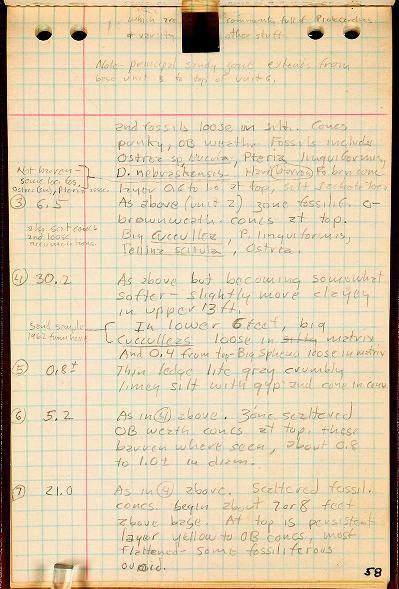 which are commonly full of Protocardia
& variety other stuff.
Note - principal sandy zone extends from
base unit 3 to top of unit 6.
and fossils loose in silt. Concs
punky, OB weath. Fossils include
Ostrea sp, Lucina, Pteria linguiformis,
D. nebrascensis. Hard (barren) Fe brn conc
layer 0.6 to 1.0 at top, silt
Not barren -
some loc. fos,
Ostrea, Pteria
③ 6.5 As above (unit 2) zone fossilif. O-
brown weath. concs at top.
Big Cucullea, P. linguiformis,
Tellina scitula, Ostrea.
also scat concs
and loose
accumulations.
④ 30.2 As above but becoming somewhat
softer - slightly more clayey
in upper 13 ft.
In lower 6 feet, big
Cucullaeas loose in silty matrix
And 0.4 from top - Big Spheno loose in matrix
Sand sample
1962 from here
⑤ 0.8± Thin ledge lite gray crumbly
limey silt with gyp and cone in cone
⑥ 5.2 As in ④ above. Zone scattered
OB weath concs at top, these
barren where seen, about 0.8
to 1.0± in diam.
⑦ 21.0 As in ④ above. Scattered fossil.
concs. begin about 7 or 8 feet
above base. At top is persistent
layer yellow to OB concs, most
flattened - some fossiliferous
ovoid.
58